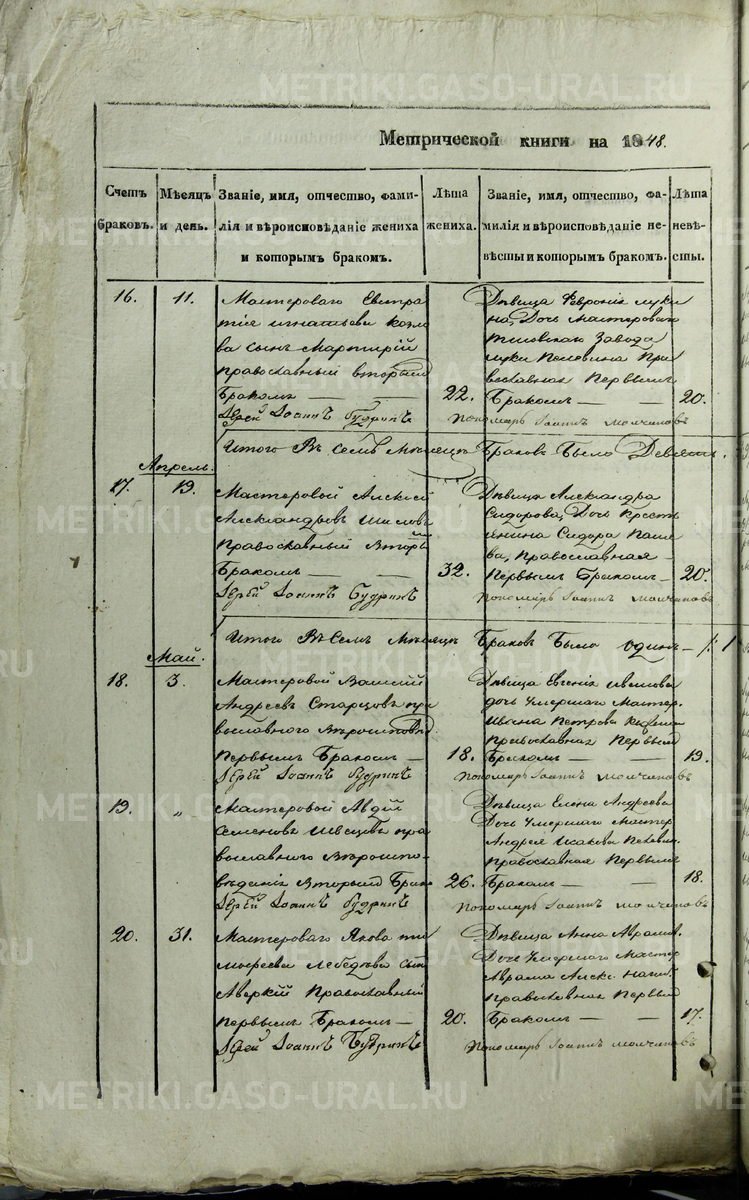 METRIKI.GASO-URAL.RU
Метрической книги на 1848.
Счетъ браковъ.
Мѣсяцъ и день.
Званіе, имя, отчество, фамилія и вѣроисповѣданіе жениха и которымъ бракомъ.
Лѣта жениха.
Званіе, имя, отчество, фамилія и вѣроисповѣданіе невѣсты и которымъ бракомъ.
Лѣта невѣсты.
16. 11.
Мастероваго Евстра
тія Игнатьева Козло
ва сынъ Мартирій
православный вторымъ
Бракомъ — — 22.
Іерей Іоаннъ Будринъ
Дѣвица Февронія Луки
на, Дочь мастероваго
завода
Луки Пра
вославная Первымъ
Бракомъ — — 20.
Пономарь Іоаннъ Молчановъ
Итого Въ Семъ Мѣсяцѣ Браковъ Было Девять.
Апрель.
17. 19.
Мастеровой Алексій
Александровъ Шиловъ
Православный Вторы
мъ
Бракомъ — — 32.
Іерей Іоаннъ Будринъ
Дѣвица Александра
Сидорова, Дочь Крестъ
янина Сидора
ва, Православная —
Первымъ Бракомъ — 20.
Пономарь Іоаннъ Молчановъ
Итого Въ Семъ Мѣсяцѣ Браковъ Было одинъ — 1
Май.
18. 3.
Мастеровой Василій
Андреевъ Старцовъ пра
вославнаго Вѣроисповѣд
Первымъ Бракомъ — 18.
Іерей Іоаннъ Будринъ
Дѣвица Евгенія Иванова
дочь Умершаго Мастер.
Ивана Петрова
Православная Первымъ
Бракомъ — — 19.
Пономарь Іоаннъ Молчановъ
19. „
Мастеровой Авдій
Семеновъ Швецовъ пра
вославнаго Вѣроиспо-
вѣданія Вторымъ Брако 26.
Іерей Іоаннъ Будринъ
Дѣвица Елена Андреева
Дочь Умершаго Мастер
Андрея Исакова
православная Первымъ
Бракомъ — — 18.
Пономарь Іоаннъ Молчановъ
20. 31.
Мастероваго Якова Ти
моѳеева Лебедева сынъ
Аверкій Православный
Первымъ Бракомъ — 20.
Іерей Іоаннъ Будринъ
Дѣвица Анна Аврам.
Дочь Умершаго Мастер
Аврама Алекс.
Православная Первымъ
Бракомъ — — 17.
Пономарь Іоаннъ Молчановъ